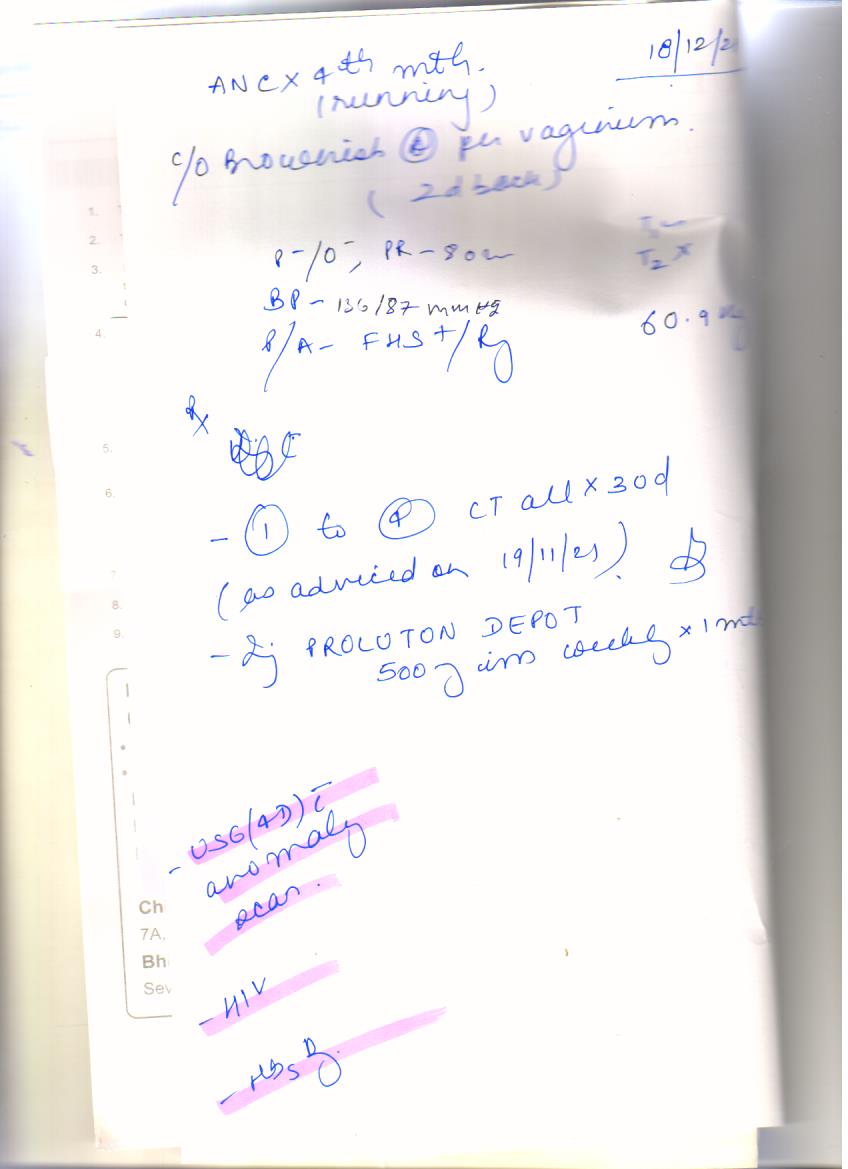 18/12/2
ANC X 4th mth.
(running)
c/o Brownish per vaginum.
( 2d back)
T2 X
P-/O-, PR-80
BP- 136/87 mmHg
60.9
P/A- FHS +/Rg
Rx
- 1 to 4 CT all x 30d
(as adviced on 19/11/21)
- Inj PROLUTON DEPOT
500 g im weekly x 1 mth
- USG(4D) c̄
anomaly
scan.
- HIV
- HbsAg.
1.
2.
3.
4.
5.
6.
7
8.
9.
Ch
7A,
Bh
Sev